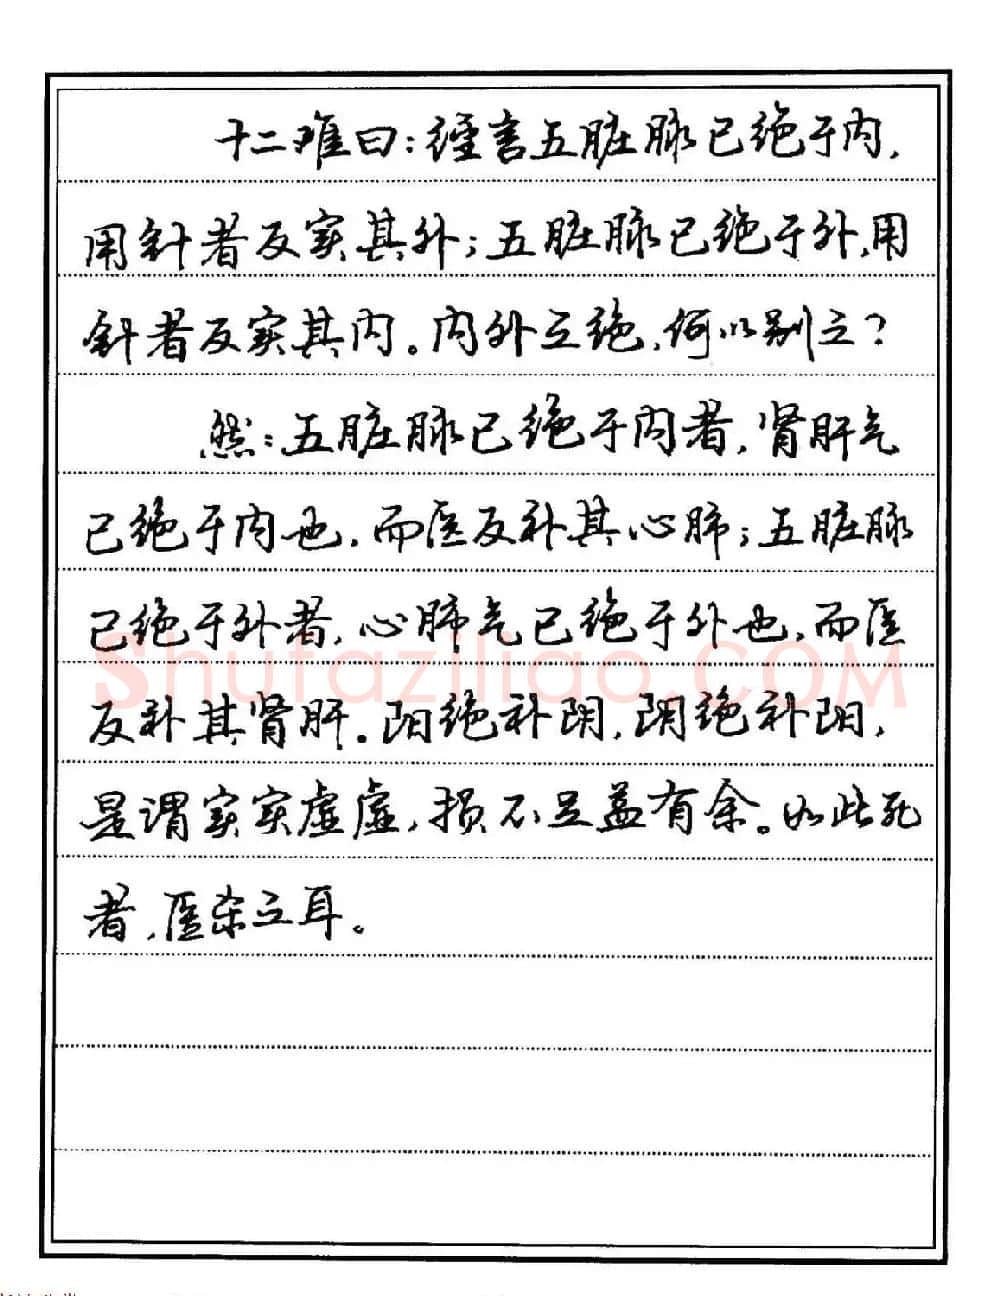 十二难曰：经言五脏脉已绝于内，
用针者反实其外；五脏脉已绝于外，用
针者反实其内。内外之绝，何以别之？
然：五脏脉已绝于内者，肾肝气
已绝于内也，而医反补其心肺；五脏脉
已绝于外者，心肺气已绝于外也，而医
反补其肾肝。阳绝补阴，阴绝补阳，
是谓实实虚虚，损不足益有余。如此死
者，医杀之耳。
Shufaziliao.COM